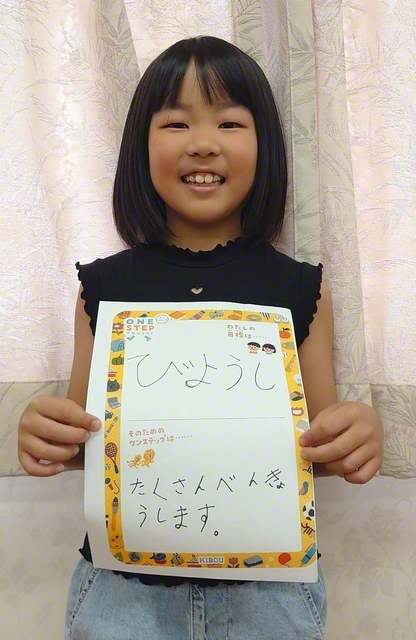 ONE
STEP
わたしの
目標は……
びようし
そのための
ワンステップは……
たくさんべんきょ
うします。
KIBOU